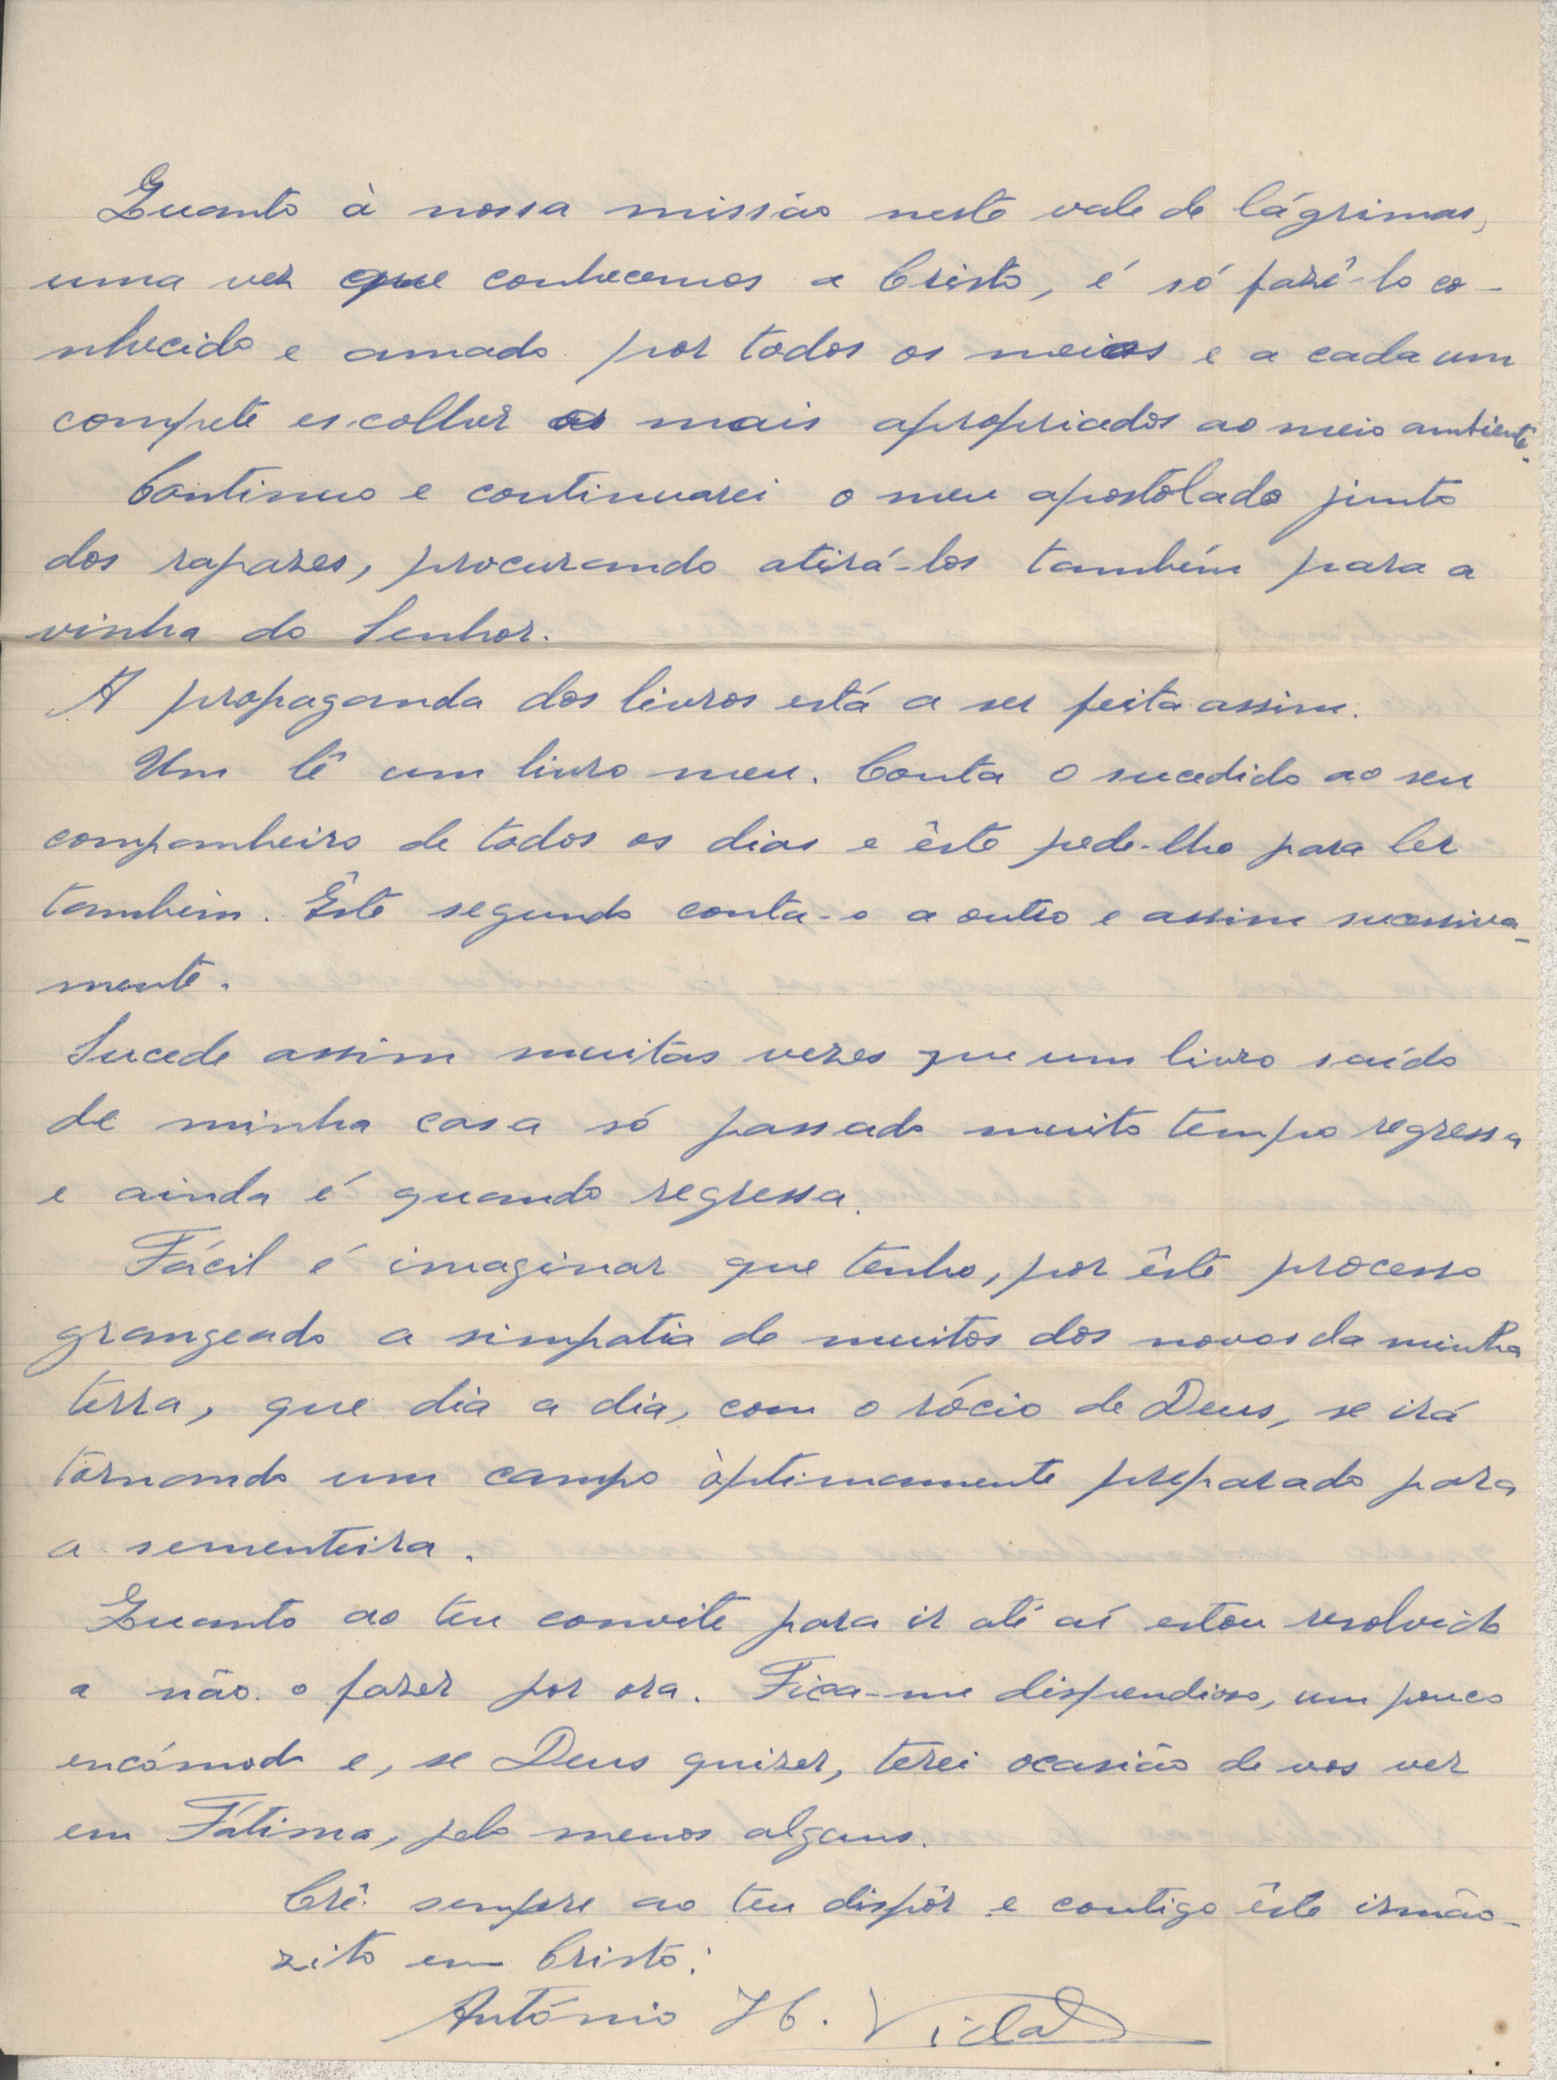 Quanto à nossa missão neste vale de lágrimas,
uma vez que conhecemos a Cristo, é só fazê-lo co-
nhecido e amado por todos os meios e a cada um
compete escolher os mais apropriados ao meio ambiente.
Continuo e continuarei o meu apostolado junto
dos rapazes, procurando atirá-los também para a
vinha do Senhor.
A propaganda dos livros está a ser feita assim.
Um lê um livro meu. Conta o sucedido ao seu
companheiro de todos os dias e êste pede-lho para ler
também. Êste segundo conta-o a outro e assim sucessiva-
mente.
Sucede assim muitas vezes que um livro saído
de minha casa só passado muito tempo regressa
e ainda é quando regressa.
Fácil é imaginar que tenho, por êste processo
grangeado a simpatia de muitos dos novos da minha
terra, que dia a dia, com o rócio de Deus, se irá
tornando um campo òptimamente preparado para
a sementeira.
Quanto ao teu convite para ir até aí estou resolvido
a não o fazer por ora. Fica-me dispendioso, um pouco
encómodo e, se Deus quizer, terei ocasião de vos ver
em Fátima, pelo menos alguns.
Crê sempre ao teu dispôr e contigo êste irmão-
zito em Cristo:
António H. Vidal